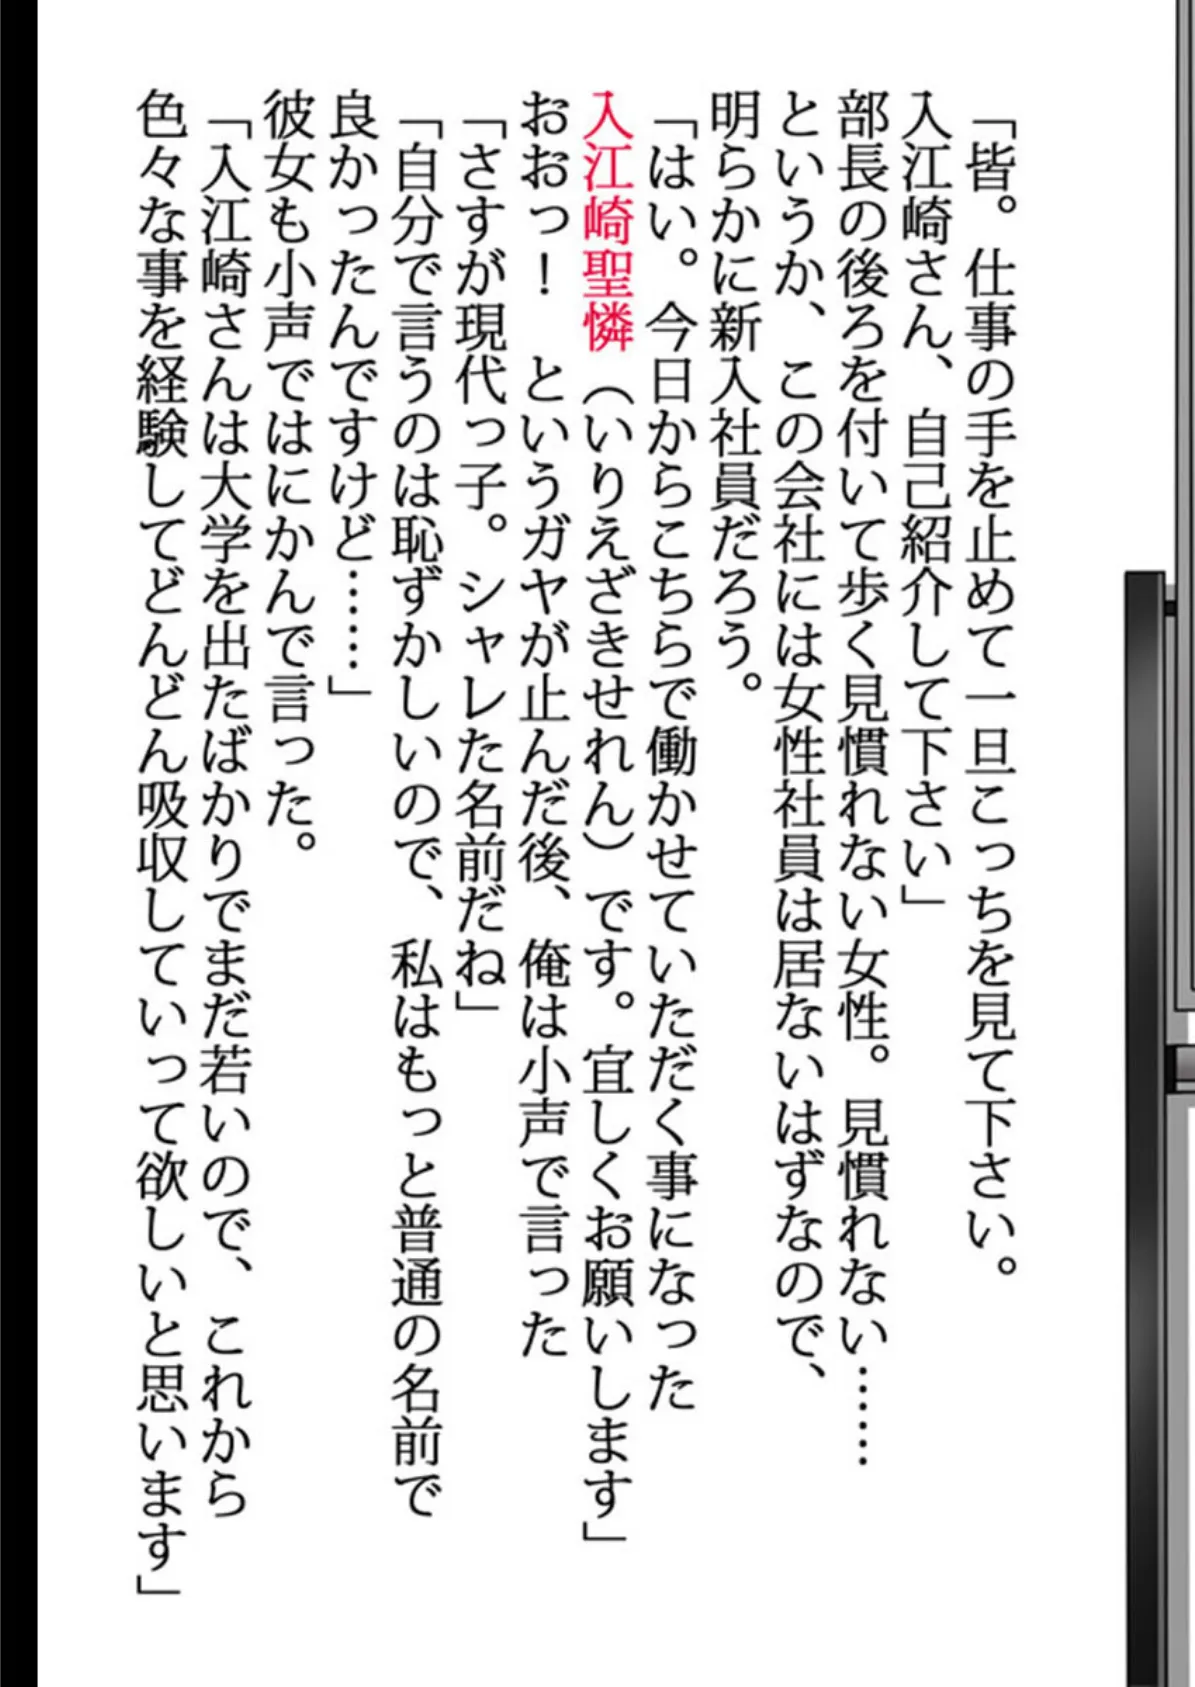 「皆。仕事の手を止めて一旦こっちを見て下さい。
入江崎さん、自己紹介して下さい」
部長の後ろを付いて歩く見慣れない女性。見慣れない……
というか、この会社には女性社員は居ないはずなので、
明らかに新入社員だろう。
「はい。今日からこちらで働かせていただく事になった
入江崎聖憐（いりえざきせれん）です。宜しくお願いします」
おおっ！　というガヤが止んだ後、俺は小声で言った
「さすが現代っ子。シャレた名前だね」
「自分で言うのは恥ずかしいので、私はもっと普通の名前で
良かったんですけど……」
彼女も小声ではにかんで言った。
「入江崎さんは大学を出たばかりでまだ若いので、これから
色々な事を経験してどんどん吸収していって欲しいと思います」